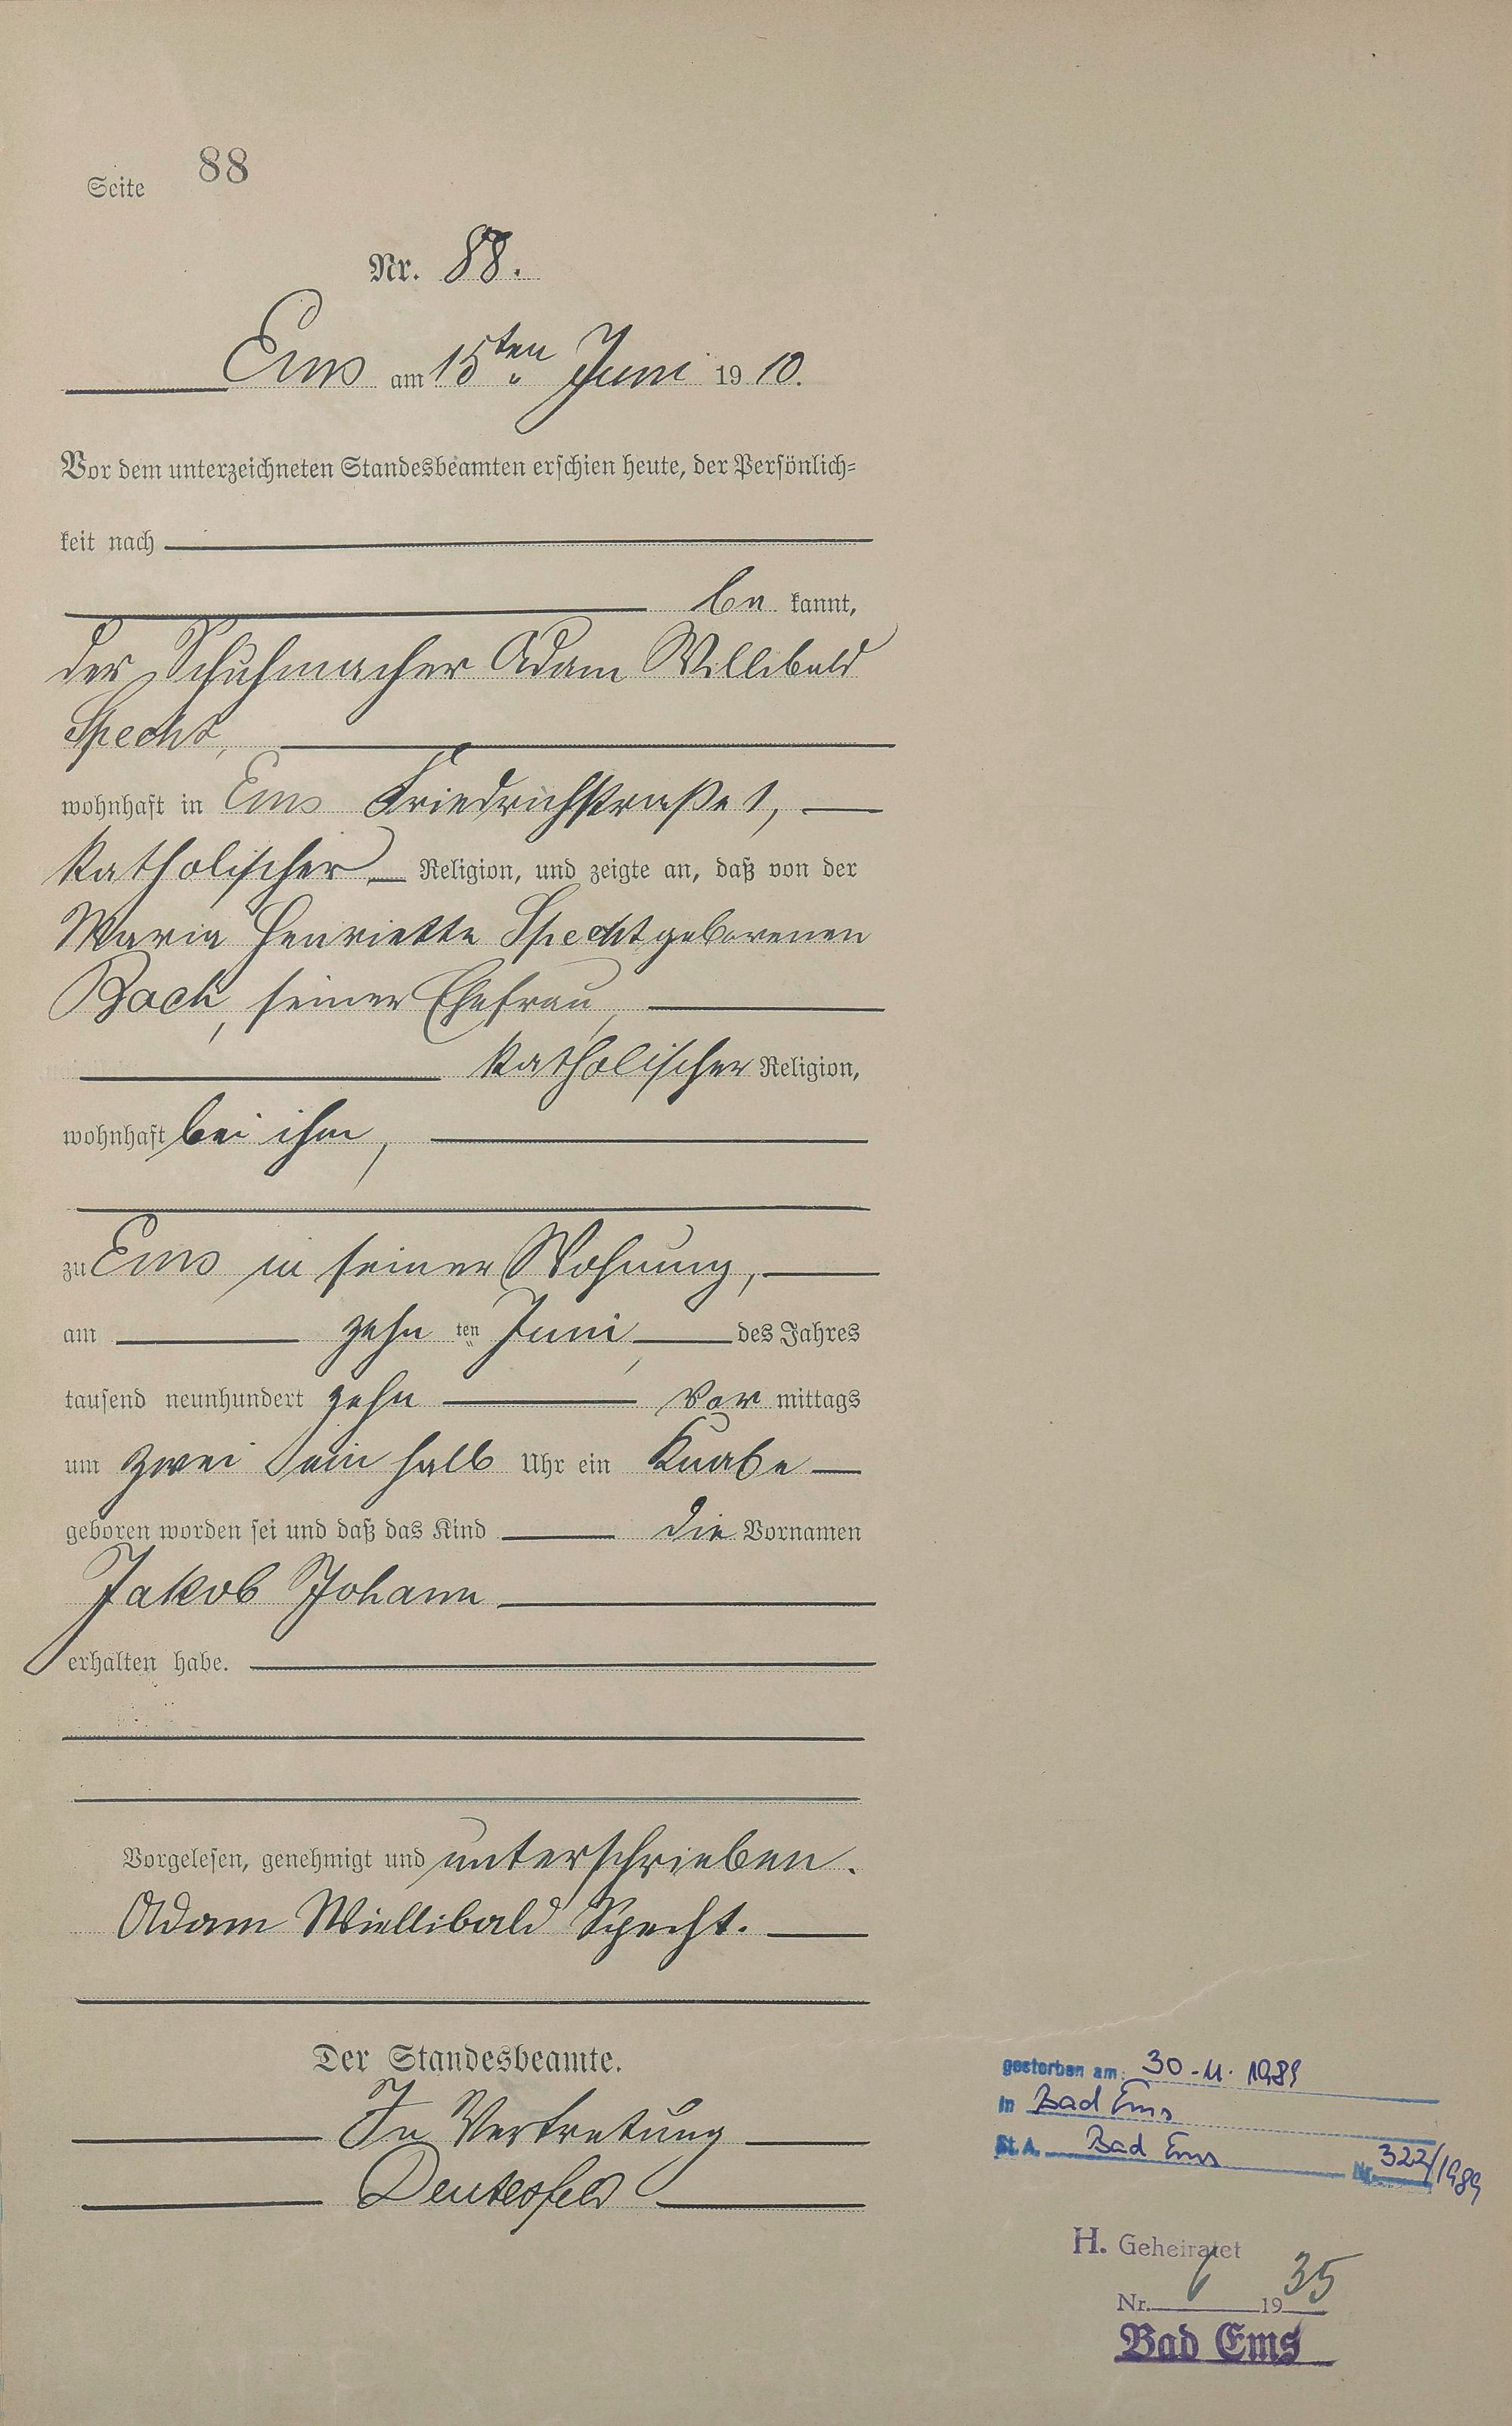 Seite 88
Nr. 88.
Ems am 15ten Juni 1910.
Vor dem unterzeichneten Standesbeamten erschien heute, der Persönlich-
keit nach
be kannt,
der Schuhmacher Adam Willibald
Specht,
wohnhaft in Ems Friedrichstraße 1,
katholischer Religion, und zeigte an, daß von der
Maria Henriette Specht geborenen
Bach, seiner Ehefrau,
katholischer Religion,
wohnhaft bei ihm,
zu Ems in seiner Wohnung,
am zehn ten Juni, des Jahres
tausend neunhundert zehn Vor mittags
um zwei ein halb Uhr ein Knabe
geboren worden sei und daß das Kind die Vornamen
Jakob Johann
erhalten habe.
Vorgelesen, genehmigt und unterschrieben.
Adam Wiellibald Specht.
Der Standesbeamte.
In Vertretung
gestorben am: 30.11.1989
in Bad Ems
St. A. Bad Ems Nr. 322/1989
H. Geheiratet
Nr. 19 35
Bad Ems